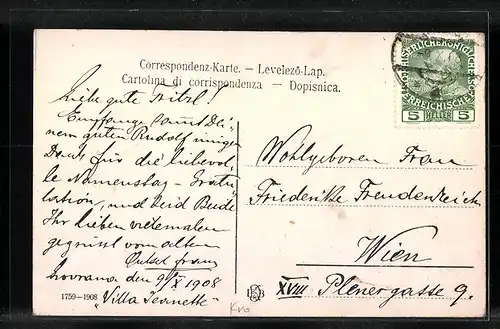 Correspondenz-Karte. — Levelező-Lap.
Cartolina di corrispondenza — Dopisnica.
Liebe gute Fritzl!
Empfange samt Dei-
nem guten Rudolf innigen
Dank für die liebevol-
le Namenstag-Gratu-
lation, und seid Beide
Ihr Lieben vielemalen
gegrüsst vom alten
Onkel Franz
Lovrana den 9/X 1908
1759—1908 "Villa Jeanette"
5 HELLER 5
Wohlgeboren Frau
Friederike Freudenreich
Wien
XVIII Plenergasse 9.